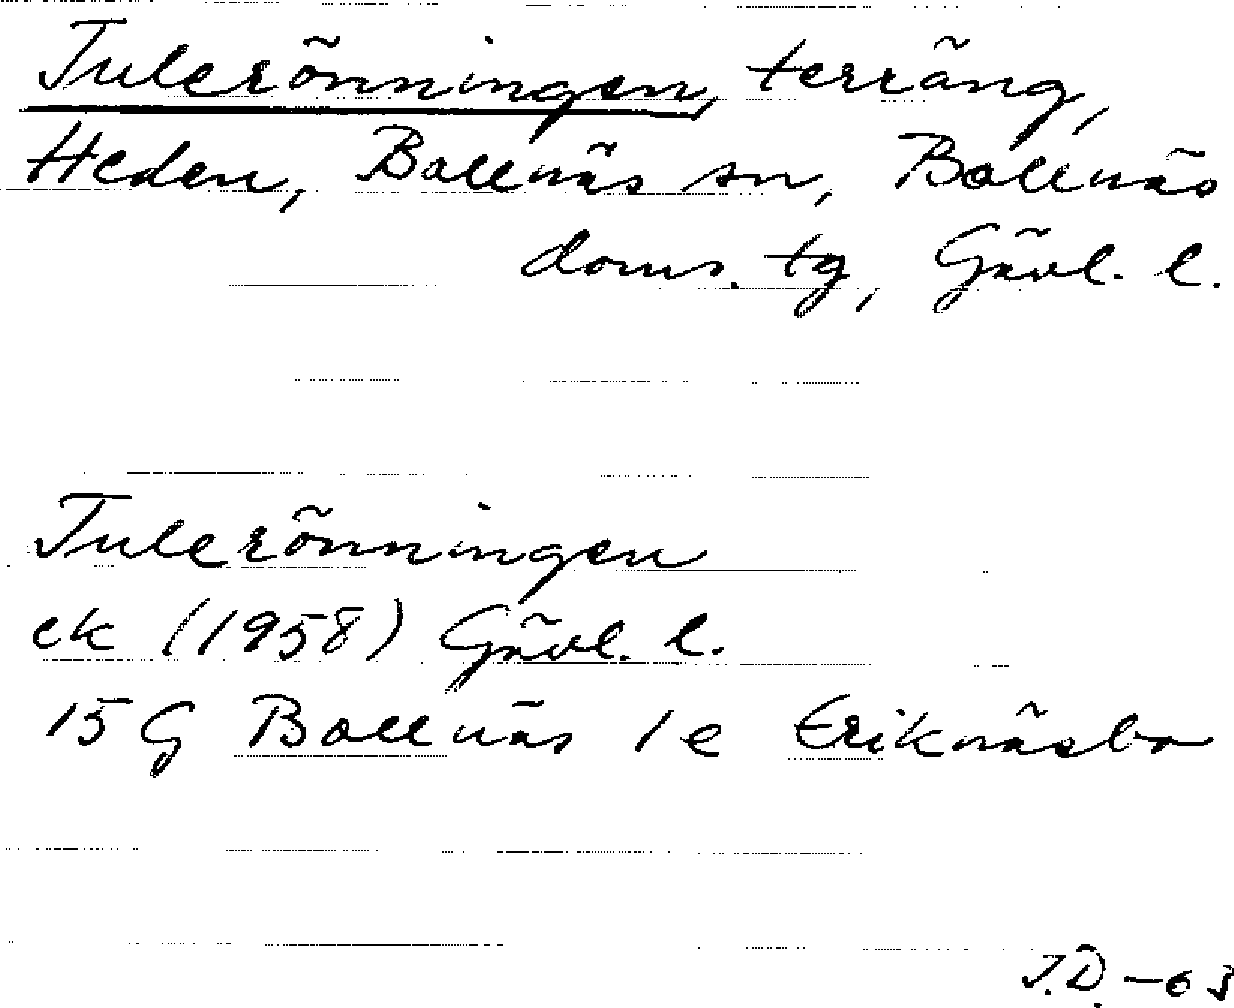 Tulerönningen, terräng,
Heden, Bollnäs sn, Bollnäs
doms. tg, Gävl. l.
Tulerönningen
ek (1958) Gävl. l.
15 G Bollnäs 1 e Eriknäsbo
J.D. -63